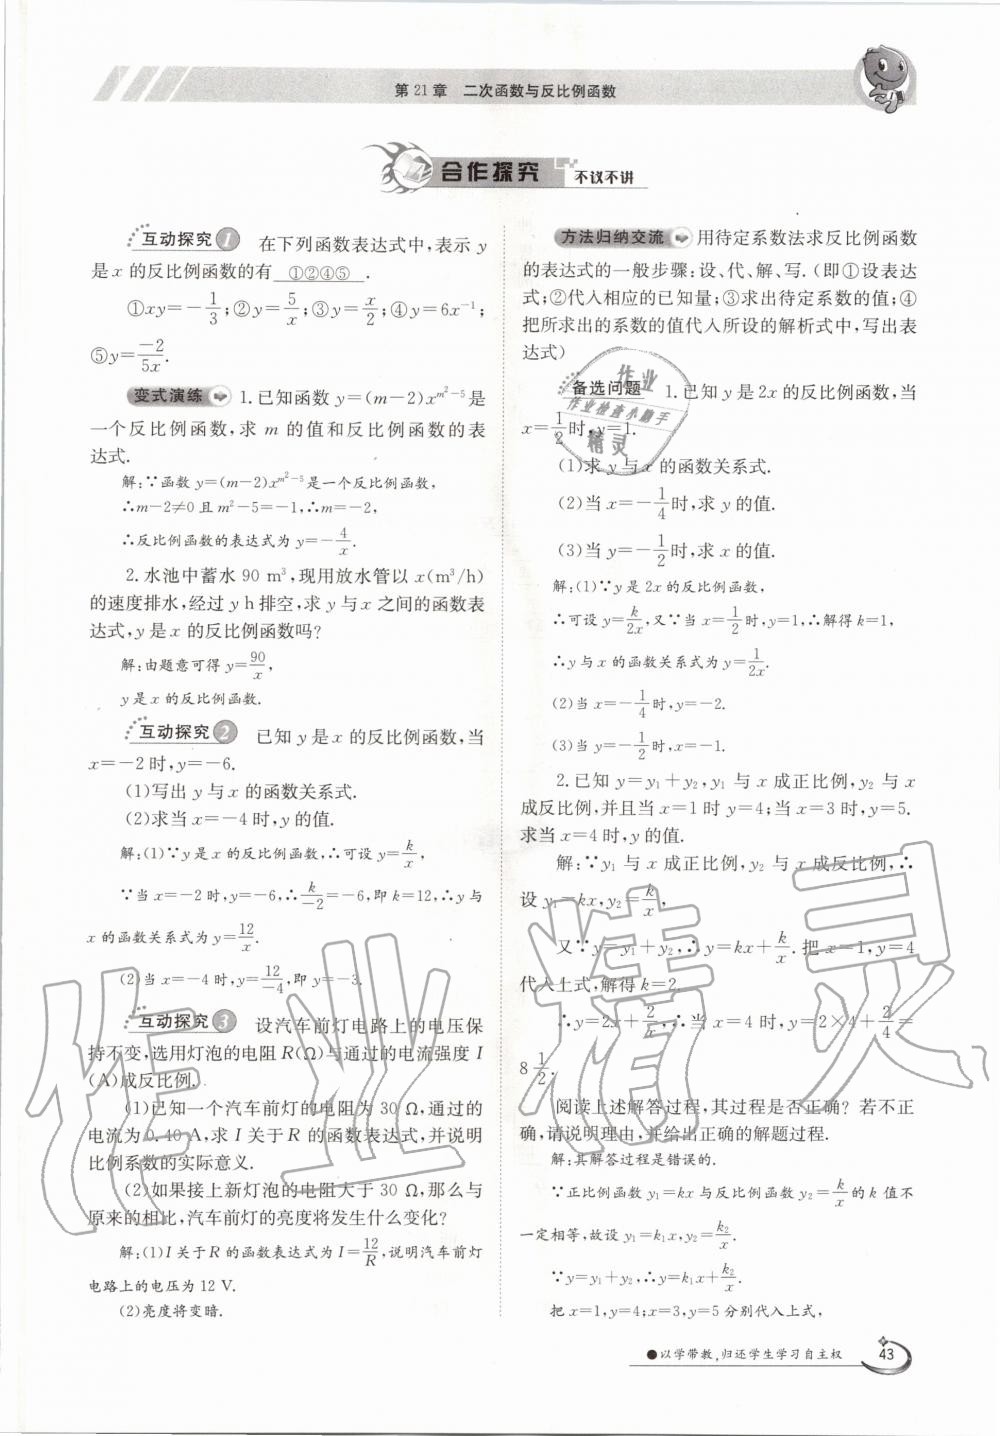 第 21 章　二次函数与反比例函数
合作探究 不议不讲
互动探究 1　在下列函数表达式中,表示 y
是 x 的反比例函数的有 ①②④⑤ .
①xy=-1/3;②y=5/x;③y=x/2;④y=6x⁻¹;
⑤y=-2/5x.
变式演练　1.已知函数 y=(m-2)x^{m²-5}是
一个反比例函数,求 m 的值和反比例函数的表
达式.
解:∵函数 y=(m-2)x^{m²-5}是一个反比例函数,
∴m-2≠0 且 m²-5=-1,∴m=-2,
∴反比例函数的表达式为 y=-4/x.
2.水池中蓄水 90 m³,现用放水管以 x(m³/h)
的速度排水,经过 y h排空,求 y 与 x 之间的函数表
达式,y 是 x 的反比例函数吗?
解:由题意可得 y=90/x,
y是 x 的反比例函数.
互动探究 2　已知 y 是 x 的反比例函数,当
x=-2 时,y=-6.
(1)写出 y 与 x 的函数关系式.
(2)求当 x=-4 时,y 的值.
解:(1)∵y 是 x 的反比例函数,∴可设 y=k/x,
∵当 x=-2 时,y=-6,∴k/-2=-6,即 k=12,∴y 与
x 的函数关系式为 y=12/x.
(2)当 x=-4 时,y=12/-4,即 y=-3.
互动探究 3　设汽车前灯电路上的电压保
持不变,选用灯泡的电阻 R(Ω)与通过的电流强度 I
(A)成反比例.
(1)已知一个汽车前灯的电阻为 30 Ω,通过的
电流为 0.40 A,求 I 关于 R 的函数表达式,并说明
比例系数的实际意义.
(2)如果接上新灯泡的电阻大于 30 Ω,那么与
原来的相比,汽车前灯的亮度将发生什么变化?
解:(1)I 关于 R 的函数表达式为 I=12/R,说明汽车前灯
电路上的电压为 12 V.
(2)亮度将变暗.
方法归纳交流　用待定系数法求反比例函数
的表达式的一般步骤:设、代、解、写.(即①设表达
式;②代入相应的已知量;③求出待定系数的值;④
把所求出的系数的值代入所设的解析式中,写出表
达式)
备选问题　1.已知 y 是 2x 的反比例函数,当
x=1/2时,y=1.
(1)求 y 与 x 的函数关系式.
(2)当 x=-1/4时,求 y 的值.
(3)当 y=-1/2时,求 x 的值.
解:(1)∵y 是 2x 的反比例函数,
∴可设 y=k/2x,又∵当 x=1/2时,y=1,∴解得 k=1,
∴y 与 x 的函数关系式为 y=1/2x.
(2)当 x=-1/4时,y=-2.
(3)当 y=-1/2时,x=-1.
2.已知 y=y₁+y₂,y₁ 与 x 成正比例,y₂ 与 x
成反比例,并且当 x=1 时 y=4;当 x=3 时,y=5.
求当 x=4 时,y 的值.
解:∵y₁ 与 x 成正比例,y₂ 与 x 成反比例,∴
设 y₁=kx,y₂=k/x,
又∵y=y₁+y₂,∴y=kx+k/x.把 x=1,y=4
代入上式,解得 k=2.
∴y=2x+2/x,∴当 x=4 时,y=2×4+2/4=
8 1/2.
阅读上述解答过程,其过程是否正确? 若不正
确,请说明理由,并给出正确的解题过程.
解:其解答过程是错误的.
∵正比例函数 y₁=kx 与反比例函数 y₂=k/x的 k 值不
一定相等,故设 y₁=k₁x,y₂=k₂/x.
∵y=y₁+y₂,∴y=k₁x+k₂/x.
把 x=1,y=4;x=3,y=5 分别代入上式,
●以学带教,归还学生学习自主权
43
作业
作业检查小助手
精灵
作业精灵